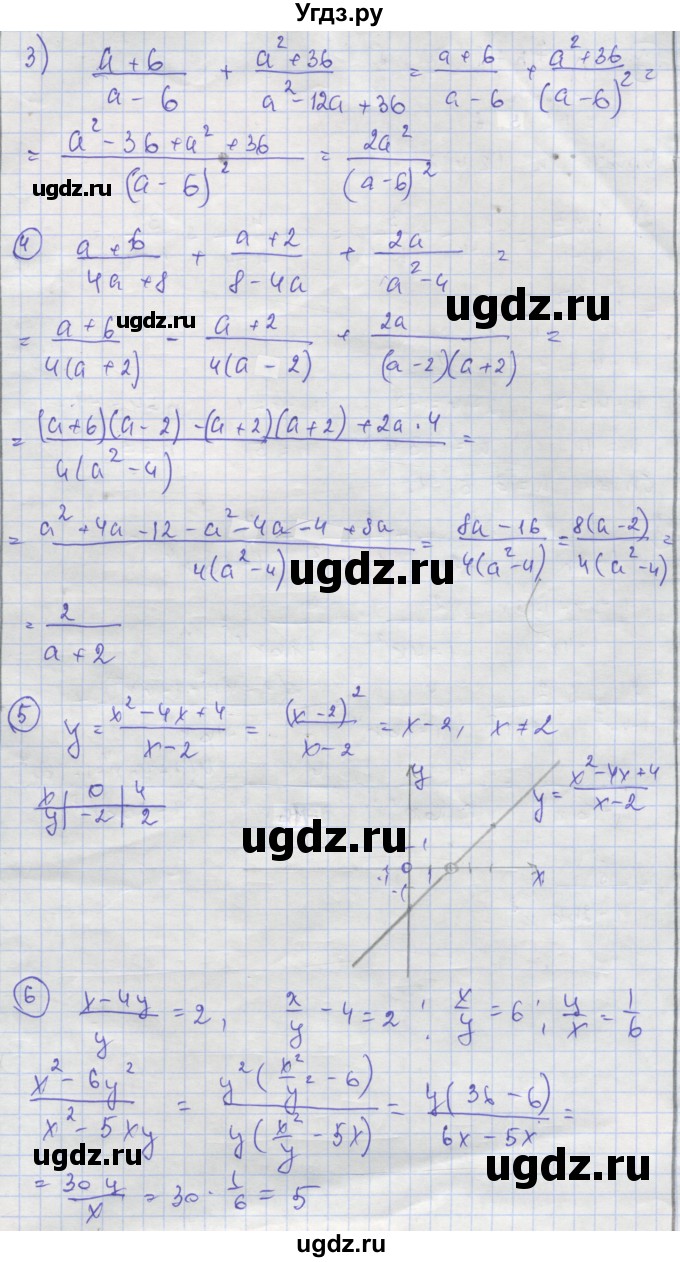 Угдз.ру
3) (a + 6)/(a - 6) + (a² + 36)/(a² - 12a + 36) = (a + 6)/(a - 6) + (a² + 36)/(a - 6)² =
= (a² - 36 + a² + 36)/(a - 6)² = 2a²/(a - 6)²
ugdz.ru ugdz.ru
4 (a + 6)/(4a + 8) + (a + 2)/(8 - 4a) + 2a/(a² - 4) =
ugdz.ru
= (a + 6)/(4(a + 2)) - (a + 2)/(4(a - 2)) + 2a/((a - 2)(a + 2)) =
ugdz.ru
= ((a + 6)(a - 2) - (a + 2)(a + 2) + 2a · 4)/(4(a² - 4)) =
= (a² + 4a - 12 - a² - 4a - 4 + 8a)/(4(a² - 4)) = (8a - 16)/(4(a² - 4)) = 8(a - 2)/(4(a² - 4)) =
ugdz.ru
= 2/(a + 2)
5 y = (x² - 4x + 4)/(x - 2) = (x - 2)²/(x - 2) = x - 2, x ≠ 2
x | 0 | 4
y | -2 | 2
y
y = (x² - 4x + 4)/(x - 2)
ugdz.ru
1
-1 0 1 x
-1
6 (x - 4y)/y = 2, x/y - 4 = 2; x/y = 6; y/x = 1/6
(x² - 6y²)/(x² - 5xy) = y²(x²/y² - 6)/(y(x²/y - 5x)) = y(36 - 6)/(6x - 5x) =
ugdz.ru ugdz.ru
= 30y/x = 30 · 1/6 = 5
ugdz.ru